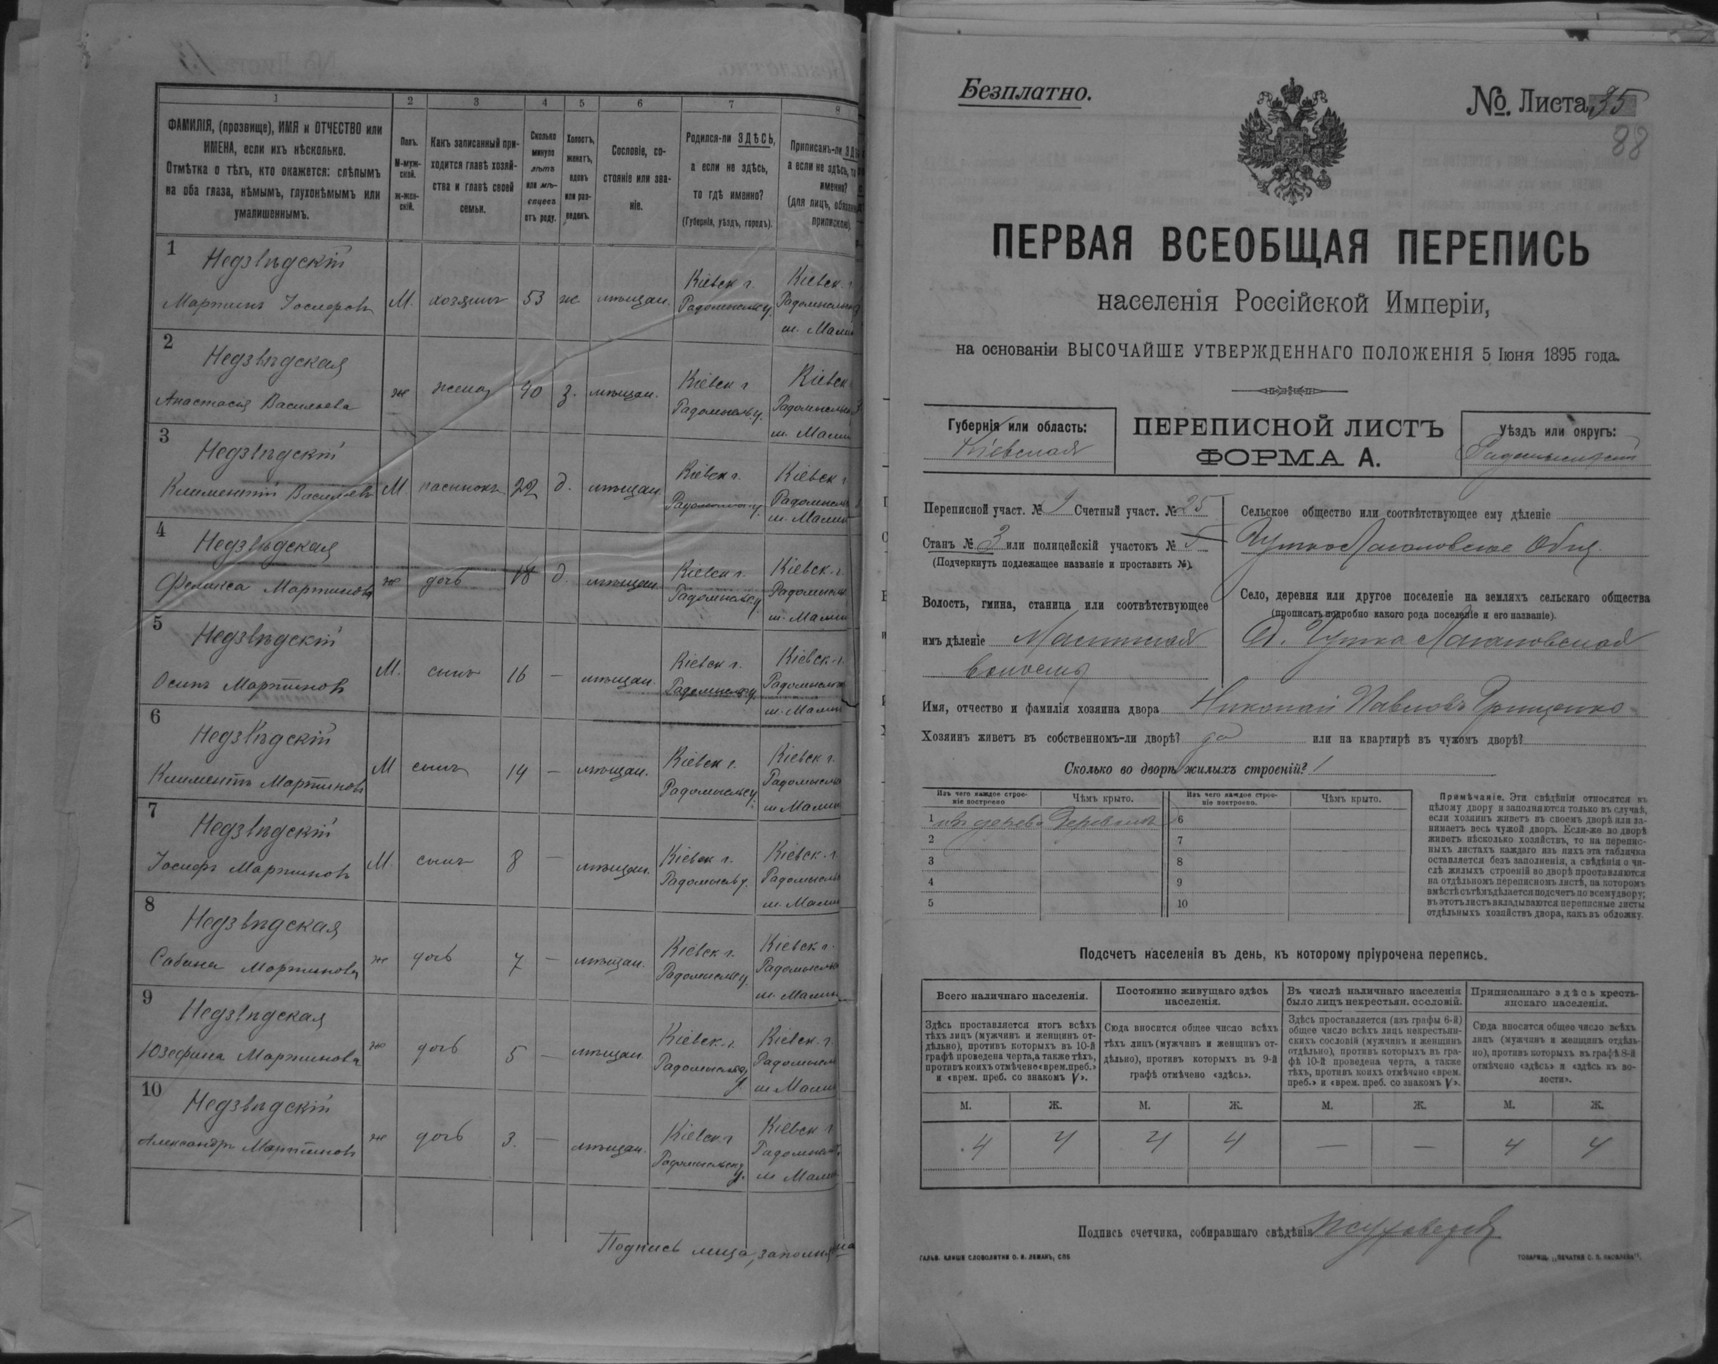 1 2 3 4 5 6 7 8
ФАМИЛІЯ, (прозвище), ИМЯ и ОТЧЕСТВО или
ИМЕНА, если ихъ нѣсколько.
Отмѣтка о тѣхъ, кто окажется: слѣпымъ
на оба глаза, нѣмымъ, глухонѣмымъ или
умалишеннымъ.
Полъ.
М-муж-
ской.
ж-жен-
скій.
Какъ записанный при-
ходится главѣ хозяй-
ства и главѣ своей
семьи.
Сколько
минуло
лѣтъ
или мѣ-
сяцевъ
отъ роду.
Холостъ,
женатъ,
вдовъ
или раз-
веденъ.
Сословіе, со-
стояніе или зва-
ніе.
Родился-ли ЗДѢСЬ,
а если не здѣсь,
то гдѣ именно?
(Губернія, уѣздъ, городъ).
Приписанъ-ли
а если не здѣсь,
именно?
(для лицъ,
1
Недзвѣдскій
Мартинъ Іосифовъ М. хозяинъ 53 ж мѣщан. Кіевск г. Радомысльу. Кіевск. г. Радомысль м. Малин
2
Недзвѣдская
Анастасія Васильева ж жена 40 з. мѣщан. Кіевск г. Радомысльу. Кіевск Радомысль м. Малин
3
Недзвѣдскій
Климентій Васильевъ М. пасынокъ 22 д. мѣщан. Кіевск г. Радомысльу. Кіевск г. Радомысль м. Малин
4
Недзвѣдская
Феликса Мартинова ж дочь 18 д. мѣщан. Кіевск г. Радомысльу. Кіевск. г. Радомысль м. Малин
5
Недзвѣдскій
Осипъ Мартиновъ М. сынъ 16 — мѣщан. Кіевск г. Радомысльу. Кіевск. г. Радомысль м. Малин
6
Недзвѣдскій
Климентъ Мартиновъ М сынъ 14 — мѣщан. Кіевск г. Радомысльу. Кіевск г. Радомысль м Малин
7
Недзвѣдскій
Іосифъ Мартиновъ М. сынъ 8 — мѣщан. Кіевск г. Радомысльу. Кіевск. г. Радомысль м. Малин
8
Недзвѣдская
Сабина Мартинова ж дочь 7 — мѣщан. Кіевск г. Радомысльу. Кіевск г. Радомысль м. Малин
9
Недзвѣдская
Юзефина Мартинова ж дочь 5 — мѣщан. Кіевск. г. Радомысльу. Кіевск. г. Радомысль м Малин
10
Недзвѣдскій
Александръ Мартиновъ ж дочь 3. — мѣщан. Кіевск г Радомысльу. Кіевск г Радомысль м. Малин
Подпись лица,
Безплатно.
№. Листа 35
88
ПЕРВАЯ ВСЕОБЩАЯ ПЕРЕПИСЬ
населенія Россійской Имперіи,
на основаніи ВЫСОЧАЙШЕ УТВЕРЖДЕННАГО ПОЛОЖЕНІЯ 5 Іюня 1895 года.
Губернія или область:
Кіевская
ПЕРЕПИСНОЙ ЛИСТЪ
ФОРМА А.
Уѣздъ или округъ:
Переписной участ. № 1 Счетный участ. № 25
Станъ № 3 или полицейскій участокъ №
(Подчеркнуть подлежащее названіе и проставить №).
Волость, гмина, станица или соотвѣтствующее
имъ дѣленіе
волость
Сельское общество или соотвѣтствующее ему дѣленіе
Село, деревня или другое поселеніе на земляхъ сельскаго общества
(прописать подробно какого рода поселеніе и его названіе).
Имя, отчество и фамилія хозяина двора Николай Павловъ Грищенко
Хозяинъ живетъ въ собственномъ-ли дворѣ? да или на квартирѣ въ чужомъ дворѣ?
Сколько во дворѣ жилыхъ строеній? 1
Изъ чего каждое строе-
ніе построено Чѣмъ крыто. Изъ чего каждое строе-
ніе построено. Чѣмъ крыто.
1 изъ дерева 6
2 7
3 8
4 9
5 10
Примѣчаніе. Эти свѣдѣнія относятся къ
цѣлому двору и заполняются только въ случаѣ,
если хозяинъ живетъ въ своемъ дворѣ или за-
нимаетъ весь чужой дворъ. Если-же во дворѣ
живетъ нѣсколько хозяйствъ, то на перепис-
ныхъ листахъ каждаго изъ нихъ эта табличка
оставляется безъ заполненія, а свѣдѣнія о чи-
слѣ жилыхъ строеній во дворѣ проставляются
на отдѣльномъ переписномъ листѣ, на которомъ
вмѣстѣ съ тѣмъ дѣлается подсчетъ по всему двору;
въ этотъ листъ вкладываются переписные листы
отдѣльныхъ хозяйствъ двора, какъ въ обложку.
Подсчетъ населенія въ день, къ которому пріурочена перепись.
Всего наличнаго населенія.
Здѣсь проставляется итогъ всѣхъ
тѣхъ лицъ (мужчинъ и женщинъ от-
дѣльно), противъ которыхъ въ 10-й
графѣ проведена черта, а также тѣхъ,
противъ коихъ отмѣчено «врем. преб.»
и «врем. преб. со знакомъ V».
Постоянно живущаго здѣсь
населенія.
Сюда вносится общее число всѣхъ
тѣхъ лицъ (мужчинъ и женщинъ от-
дѣльно), противъ которыхъ въ 9-й
графѣ отмѣчено «здѣсь».
Въ числѣ наличнаго населенія
было лицъ некрестьян. сословій.
Здѣсь проставляется (изъ графы 6-й)
общее число всѣхъ лицъ некрестьян-
скихъ сословій (мужчинъ и женщинъ
отдѣльно), противъ которыхъ въ гра-
фѣ 10-й проведена черта, а также
тѣхъ, противъ коихъ отмѣчено «врем.
преб.» и «врем. преб. со знакомъ V».
Приписаннаго здѣсь кресть-
янскаго населенія.
Сюда вносится общее число всѣхъ
лицъ (мужчинъ и женщинъ отдѣль-
но), противъ которыхъ въ графѣ 8-й
отмѣчено «здѣсь» и «здѣсь въ во-
лости».
М. Ж. М. Ж. М. Ж. М. Ж.
4 4 4 4 — — 4 4
Подпись счетчика, собиравшаго свѣдѣнія